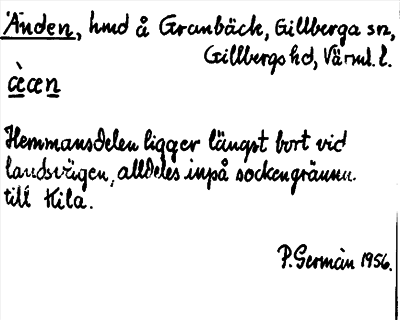 Änden, hmd å Granbäck, Gillberga sn,
Gillbergs hd, Värml. l.
æ̀æn
Hemmansdelen ligger längst bort vid
landsvägen, alldeles inpå sockengränsen
till Kila.
P. Germán 1956.